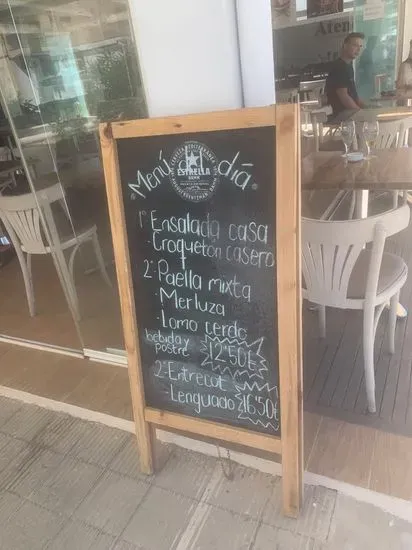 Menú día
ESTRELLA
DAMM
1º Ensalada casa
·Croqueton casero
2º Paella mixta
·Merluza
·Lomo cerdo
bebida y
postre 12'50€
2º Entrecot
Lenguado 16'50€